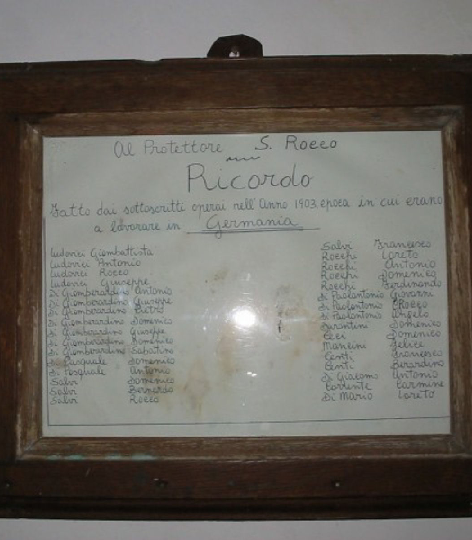 Al Protettore S. Rocco
Ricordo
Fatto dai sottoscritti operai nell'Anno 1903 epoca in cui erano
a lavorare in Germania
Ludovici Giombattista
Ludovici Antonio
Ludovici Rocco
Ludovici Giuseppe
Di Giomberardino Antonio
Di Giomberardino Giuseppe
Di Giomberardino Pietro
Di Giomberardino Domenico
Di Giomberardino Giuseppe
Di Giomberardino Domenico
Di Giomberardino Sabatino
Di Pasquale Domenico
Di Pasquale Antonio
Salvi Domenico
Salvi Bernardo
Salvi Rocco
Salvi Francesco
Rocchi Loreto
Rocchi Antonio
Rocchi Domenico
Rocchi Ferdinando
Di Paolantonio Giovanni
Di Paolantonio Rocco
Di Paolantonio Angelo
Domenico
Ceci Domenico
Mancini Felice
Centi Francesco
Centi Berardino
Di Giacomo Antonio
Torrente Carmine
Di Mario Loreto